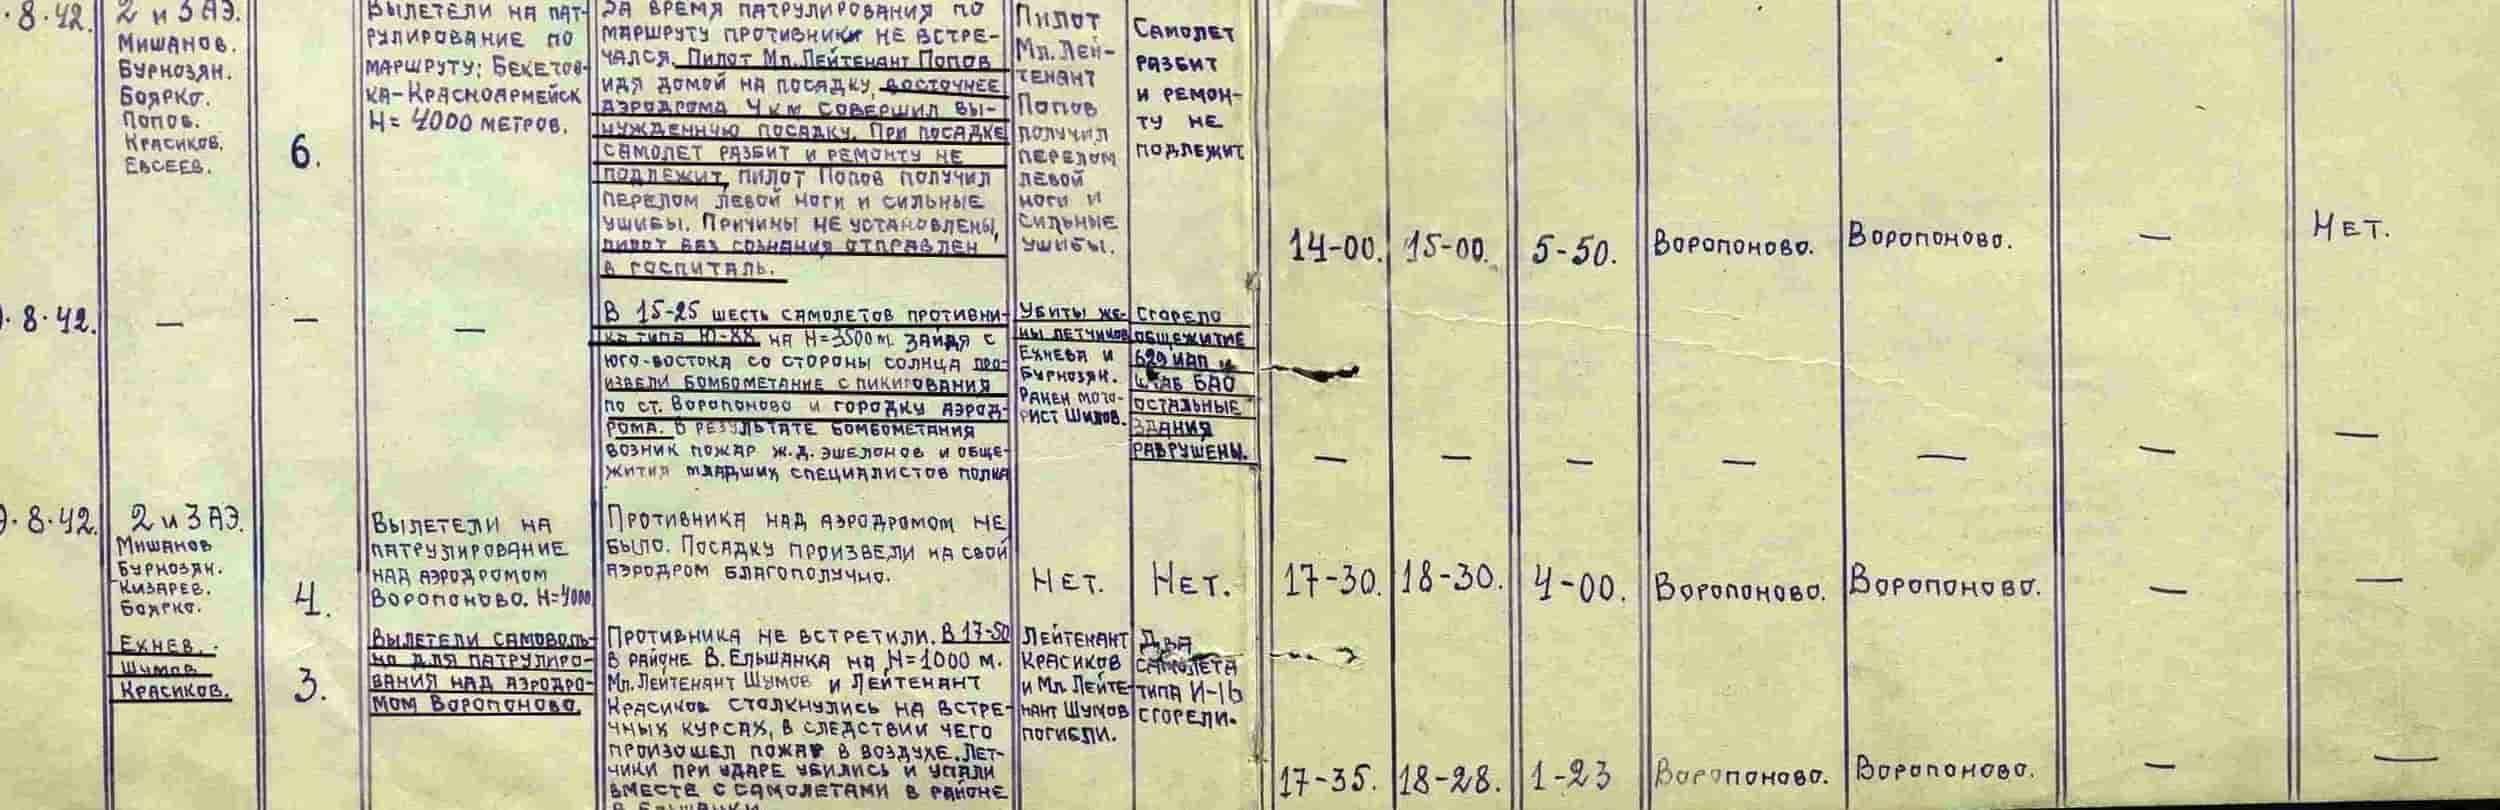 .8.42.
2 и 3 АЭ.
Мишанов.
Бурнозян.
Боярко.
Попов.
Красиков.
Евсеев.
6.
Вылетели на пат-
рулирование по
маршруту: Бекетов-
ка-Красноармейск
Н= 4000 метров.
За время патрулирования по
маршруту противники не встре-
чался. Пилот Мл. Лейтенант Попов
идя домой на посадку, восточнее
аэродрома 4 км совершил вы-
нужденную посадку. При посадке
самолет разбит и ремонту не
подлежит, пилот Попов получил
перелом левой ноги и сильные
ушибы. Причины не установлены,
пилот без сознания отправлен
в госпиталь.
Пилот
Мл. Лей-
тенант
Попов
получил
перелом
левой
ноги и
сильные
ушибы.
Самолет
разбит
и ремон-
ту не
подлежит
14-00.
15-00.
5-50.
Воропоново.
Воропоново.
—
Нет.
.8.42.
—
—
—
В 15-25 шесть самолетов противни-
ка типа Ю-88 на Н=3500 м. зайдя с
юго-востока со стороны солнца про-
извели бомбометание с пикирования
по ст. Воропоново и городку аэрод-
рома. В результате бомбометания
возник пожар ж.д. эшелонов и обще-
жития младших специалистов полка
Убиты же-
ны летчиков
Ехнева и
Бурнозян.
Ранен мото-
рист Шилов.
Сгорело
общежитие
629 ИАП и
штаб БАО
остальные
здания
разрушены.
—
—
—
—
—
—
—
.8.42.
2 и 3 АЭ.
Мишанов
Бурнозян.
Кизарев.
Боярко.
4.
Вылетели на
патрулирование
над аэродромом
Воропоново. Н=4000
Противника над аэродромом не
было. Посадку произвели на свой
аэродром благополучно.
Нет.
Нет.
17-30.
18-30.
4-00.
Воропоново.
Воропоново.
—
—
Ехнев.
Шумов
Красиков.
3.
Вылетели самоволь-
но для патрулиро-
вания над аэродро-
мом Воропоново.
Противника не встретили. В 17-50
в районе В. Ельшанка на Н=1000 м.
Мл. Лейтенант Шумов и Лейтенант
Красиков столкнулись на встре-
чных курсах, в следствии чего
произошел пожар в воздухе. Лет-
чики при ударе убились и упали
вместе с самолетами в районе
В. Ельшанки
Лейтенант
Красиков
и Мл. Лейте-
нант Шумов
погибли.
Два
самолета
типа И-16
сгорели.
17-35.
18-28.
1-23
Воропоново.
Воропоново.
—
—